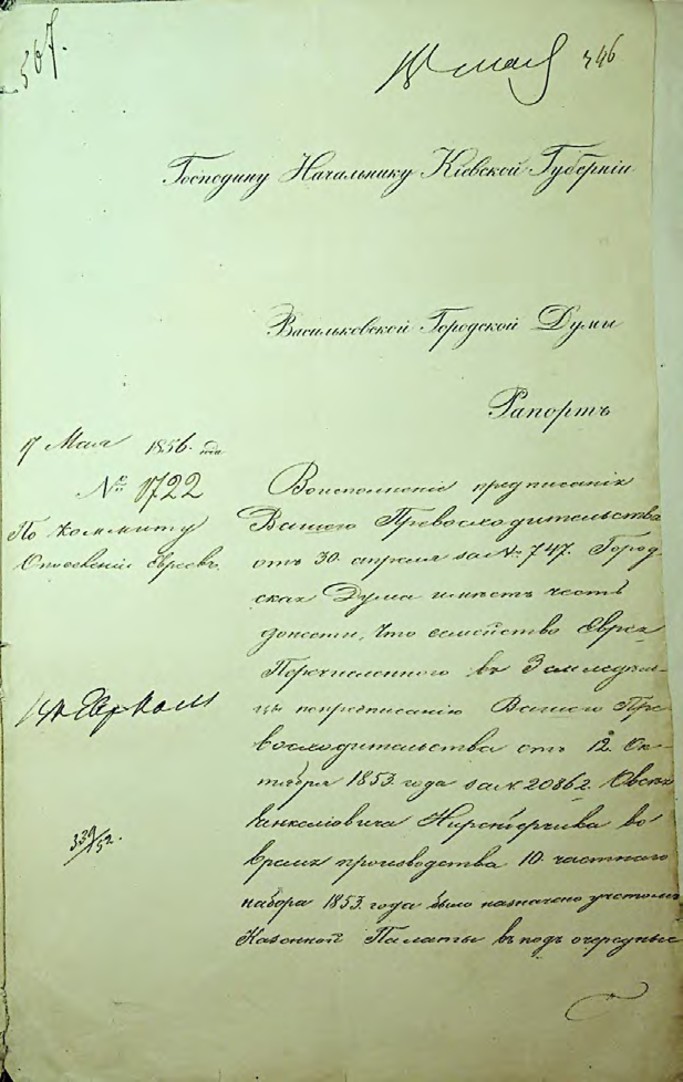 567.
18 мая 346
Господину Начальнику Кіевской Губерніи
Васильковской Городской Думы
Рапортъ
17 Мая 1856. года
№ 1722
По Коммиту
Евреевъ.
Воисполненіе предписанія
Вашего Превосходительства
отъ 30. апреля за № 747. Город-
ская Дума имѣетъ честь
донести, что семейство Еврея
Перечисленного въ Земледѣль-
цы попредписанію Вашего Пре-
восходительства отъ 12. Ок-
тября 1853. года за № 20862.
во
время производства 10. частного
набора 1853. года было назначено
Казенной Палаты въ подъ очередные
339/52.